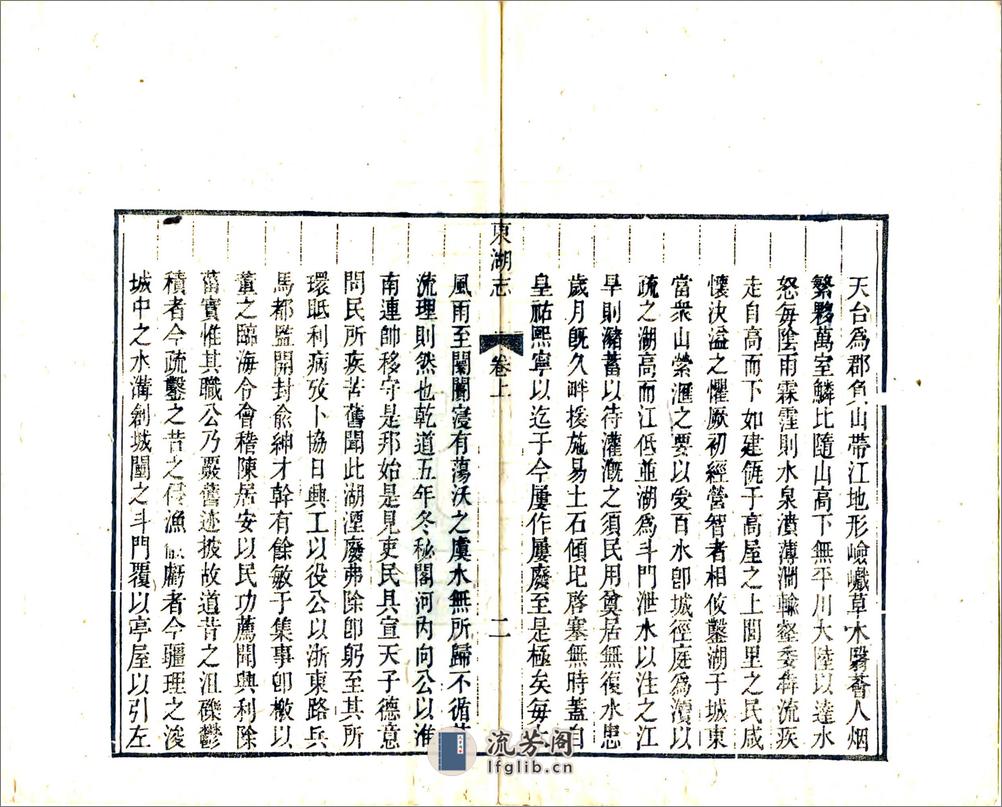 天台爲郡負山帶江地形嶮巇草木翳薈人烟
繁夥萬室鱗比隨山高下無平川大陸以達水
怒每陰雨霖霪則水泉濆薄澗輸壑委犇流疾
走自高而下如建瓴于高屋之上閭里之民咸
懷決溢之懼厥初經營智者相攸鑿湖于城東
當衆山縈滙之要以爰百水卽城徑庭爲瀆以
疏之湖高而江低並湖爲斗門泄水以注之江
旱則瀦蓄以待灌漑之須民用奠居無復水患
歲月旣久畔援施易土石傾圮啓塞無時蓋自
皇祐熙寧以迄于今屢作屢廢至是極矣每
東湖志
卷上
二
風雨至闤闠寖有蕩沃之虞水無所歸不循
流理則然也乾道五年冬秘閣河內向公以淮
南連帥移守是邦始是見吏民具宣天子德意
問民所疾苦舊聞此湖湮廢弗除卽躬至其所
環眂利病攷卜協日興工以役公以浙東路兵
馬都監開封俞紳才幹有餘敏于集事卽檄以
董之臨海令會稽陳居安以民功薦聞興利除
菑實惟其職公乃覈舊迹披故道昔之沮礫鬱
積者今疏鑿之昔之侵漁虧者今疆理之浚
城中之水溝創城闉之斗門覆以亭屋以引左
流芳阁
lfglib.cn